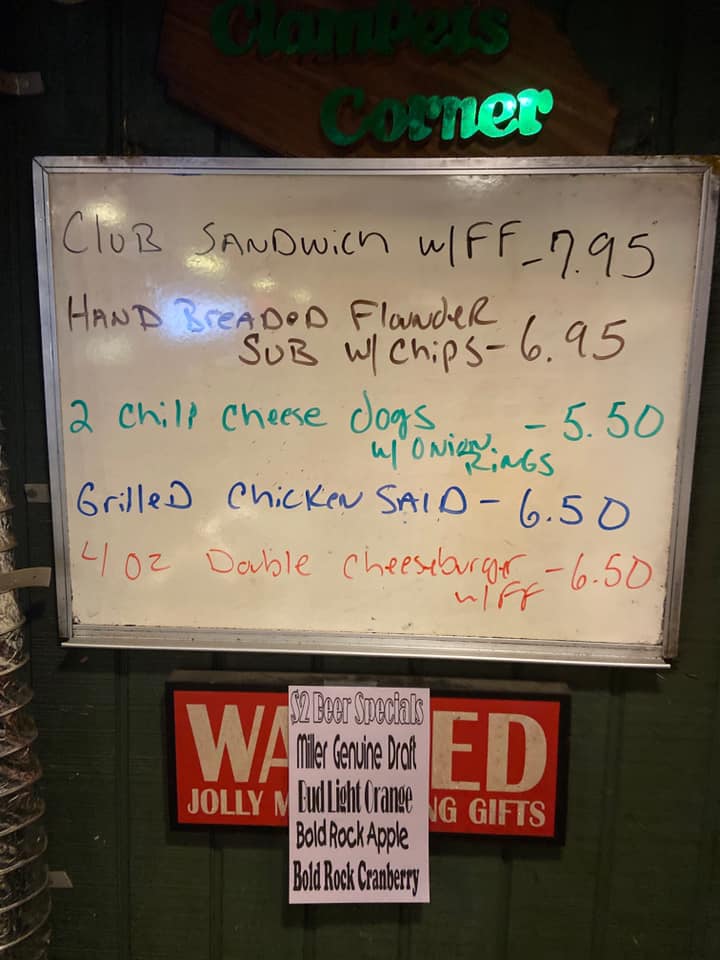 Clampets
Corner
CLUB SANDWich w/FF - 7.95
HAND BreADeD FlounDeR
SUB w/ chips - 6.95
2 chili cheese dogs - 5.50
w/ ONion RiNGS
GrilleD ChickeN SAlD - 6.50
4 oz Double cheeseburger - 6.50
w/FF
$2 Beer Specials
Miller Genuine Draft
Bud Light Orange
Bold Rock Apple
Bold Rock Cranberry
WA ED
JOLLY M NG GIFTS